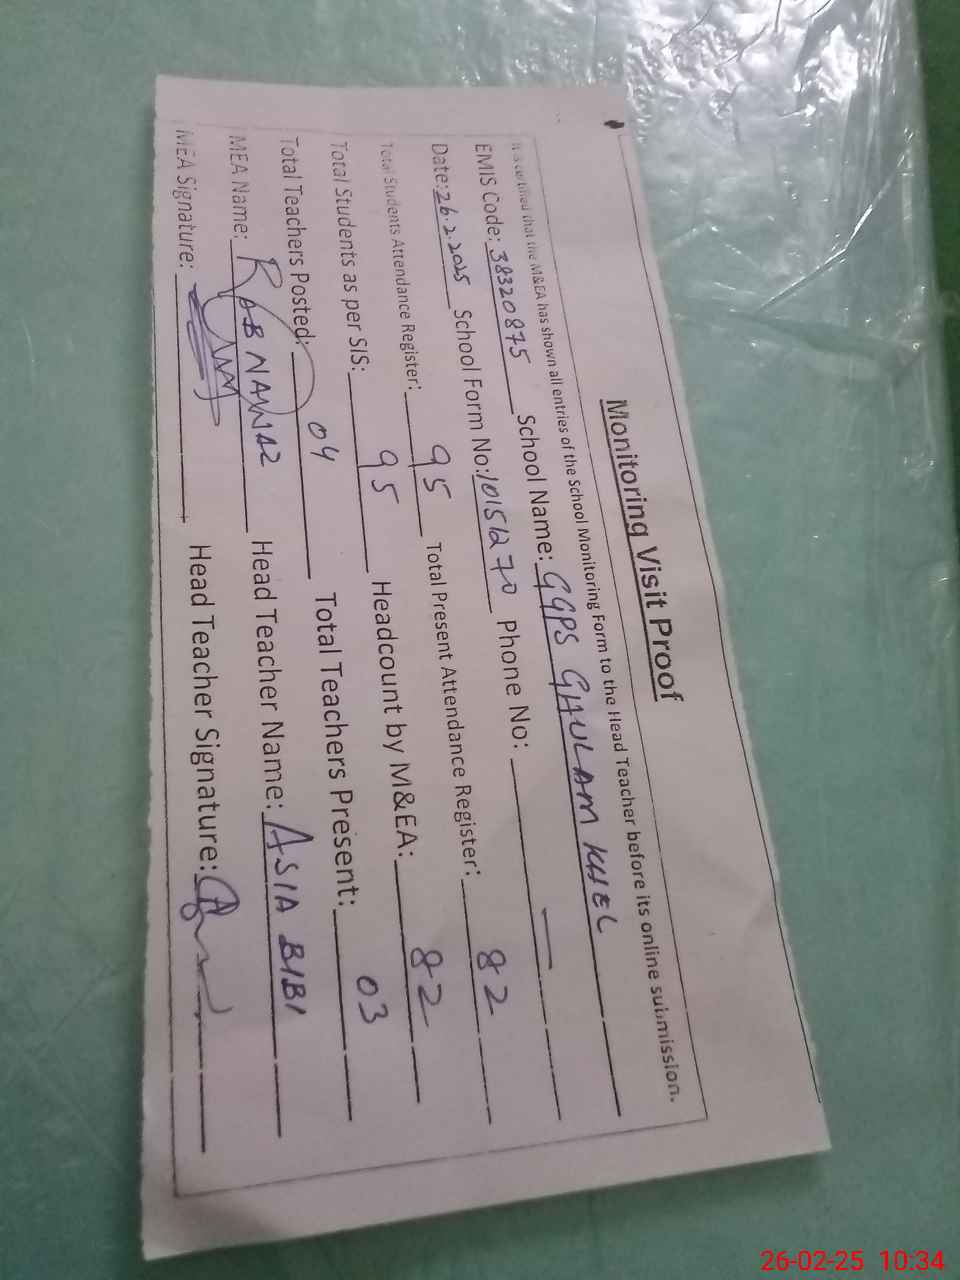 Monitoring Visit Proof
It is certified that the M&EA has shown all entries of the School Monitoring Form to the Head Teacher before its online submission.
EMIS Code: 38320875 School Name: GGPS GHULAM KHEL
Date: 26.2.2025 School Form No: 10151270 Phone No: —
Total Students Attendance Register: 95 Total Present Attendance Register: 82
Total Students as per SIS: 95 Headcount by M&EA: 82
Total Teachers Posted: 04 Total Teachers Present: 03
MEA Name: RAB NAWAZ Head Teacher Name: ASIA BIBI
MEA Signature: Head Teacher Signature:
26-02-25 10:34